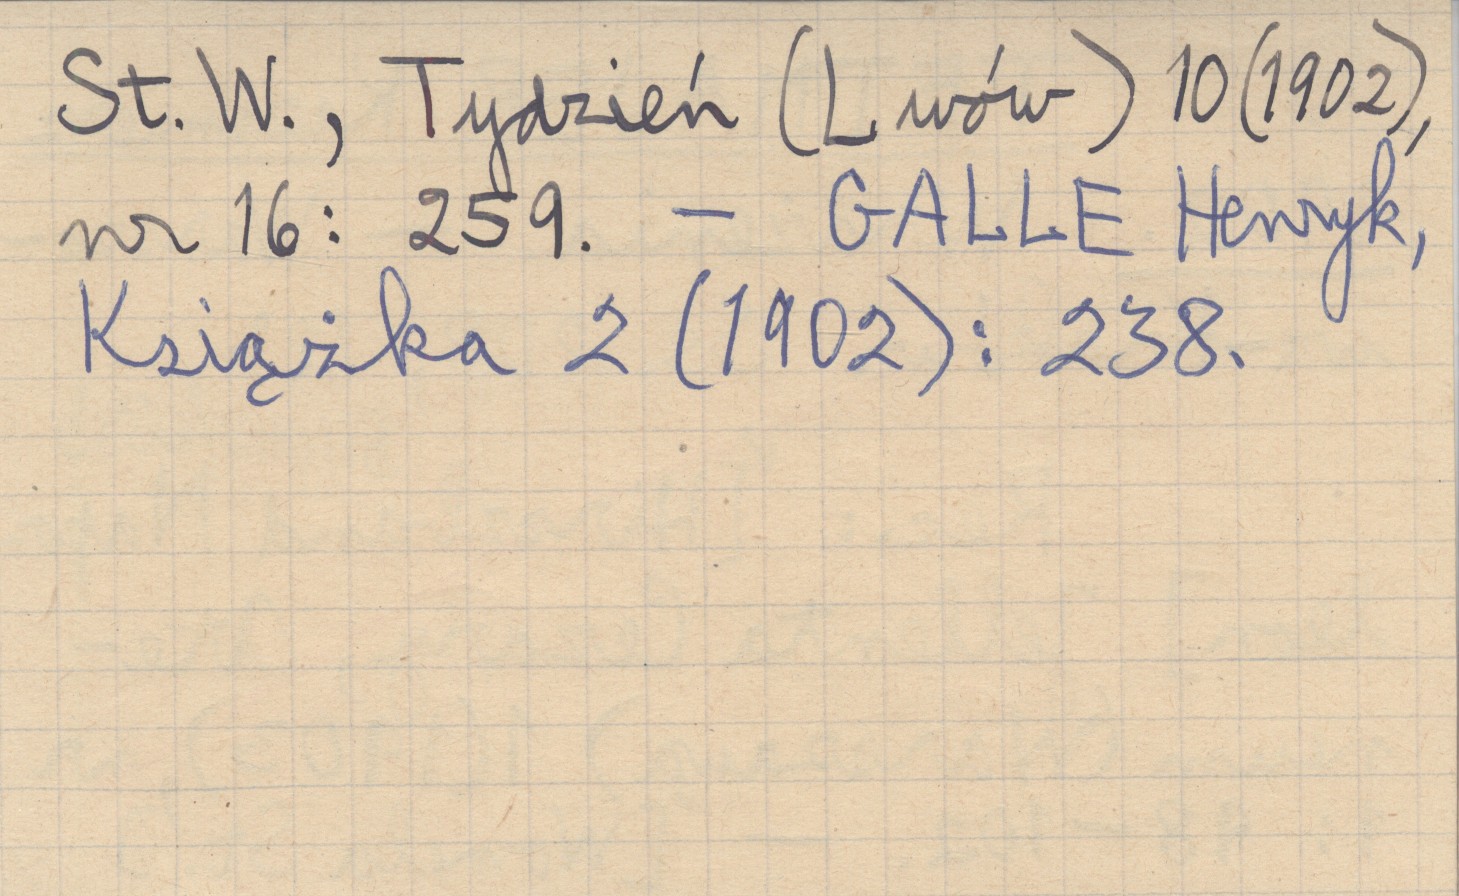 St. W., Tydzień (Lwów) 10 (1902),
nr 16: 259. – GALLE Henryk,
Książka 2 (1902): 238.